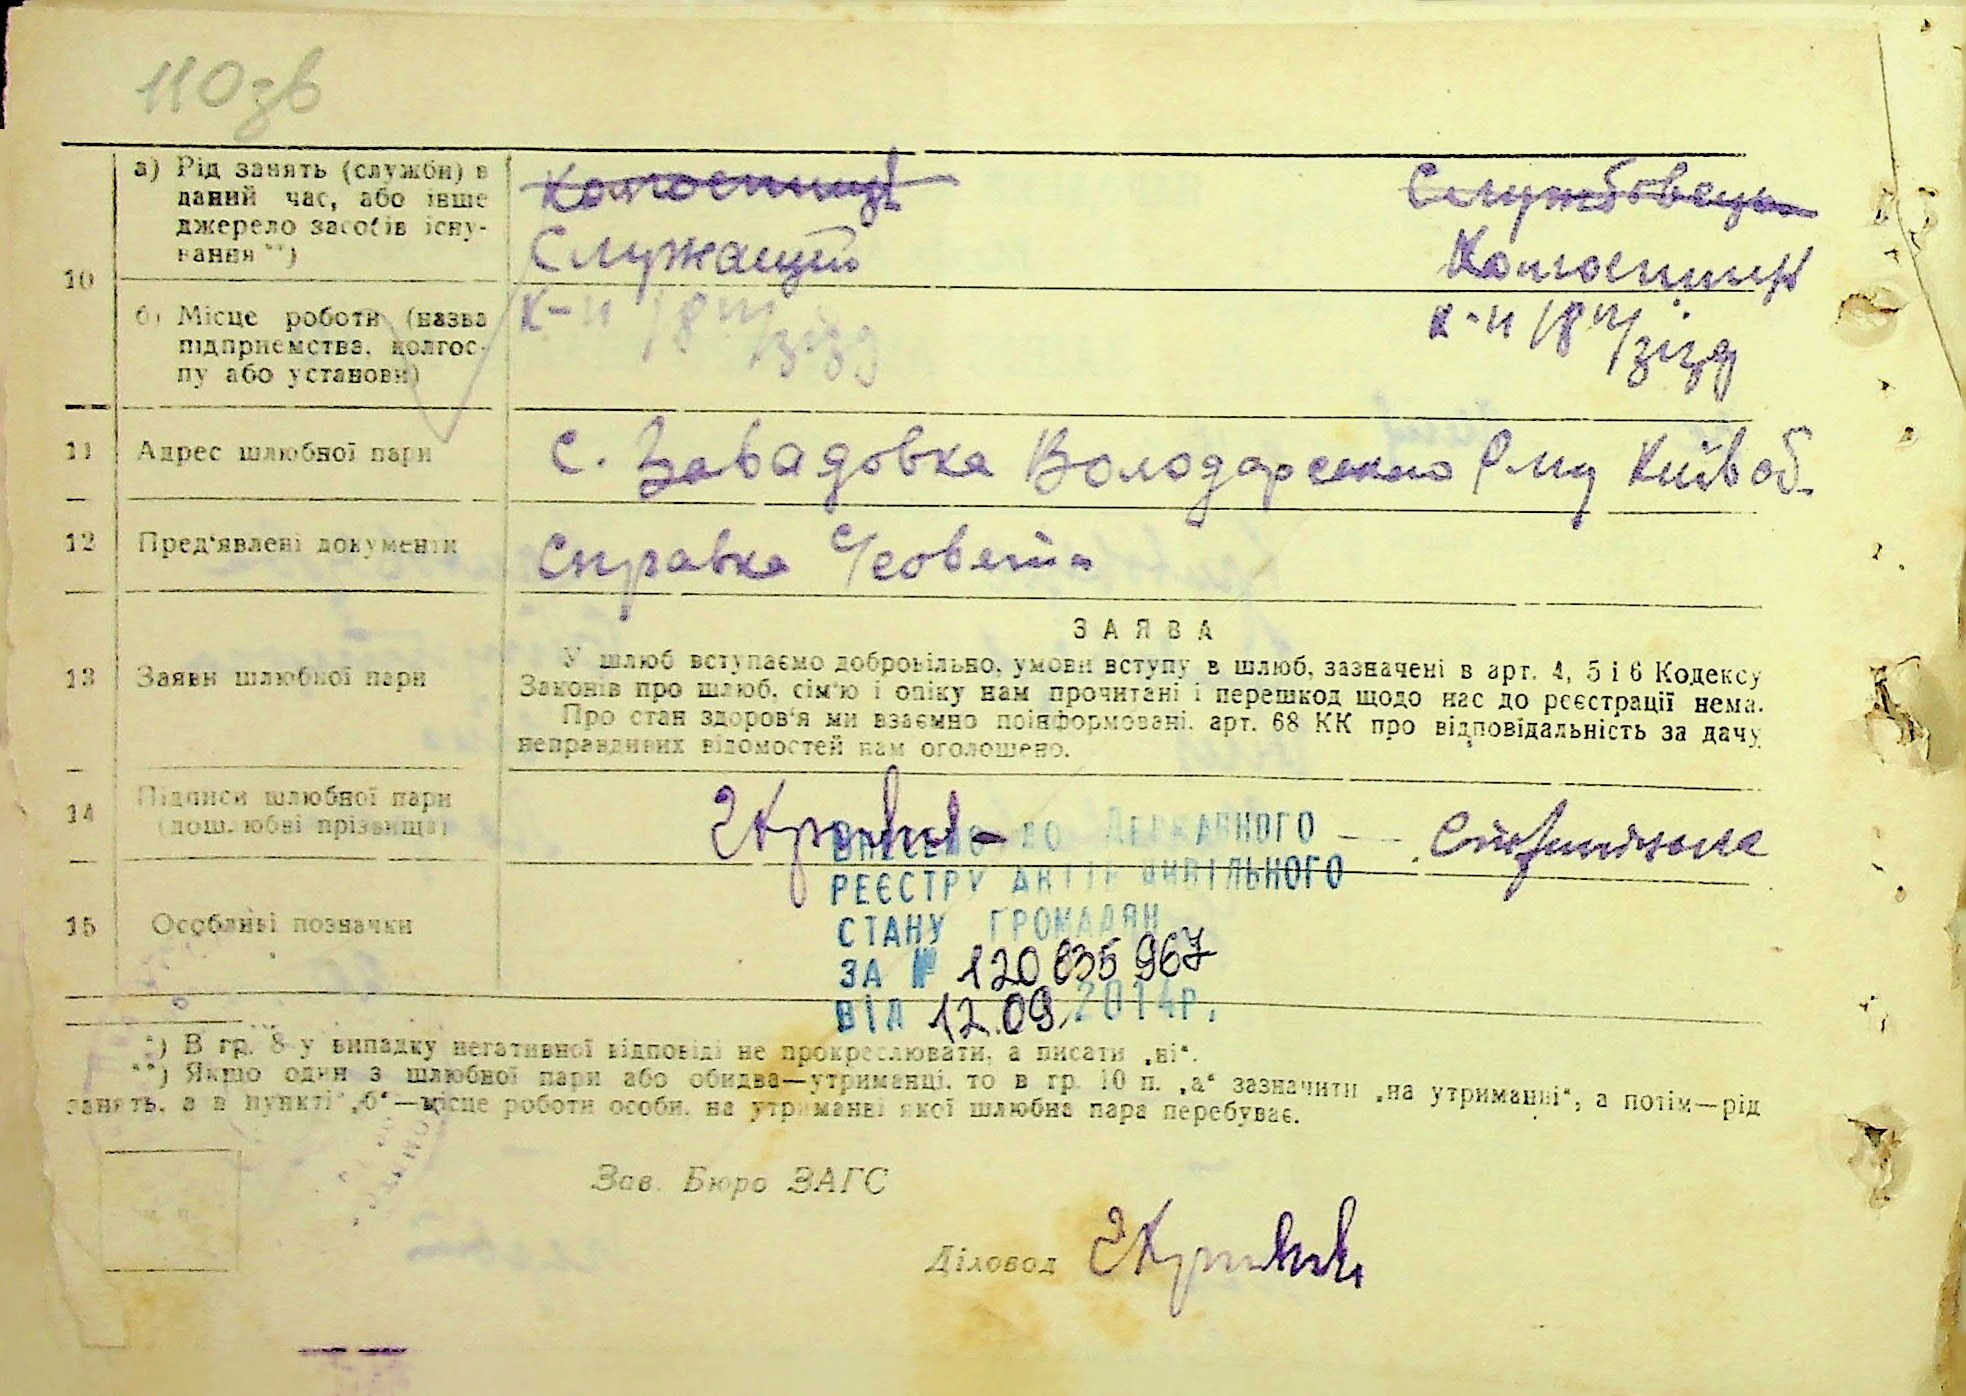 110зв
а) Рід занять (служби) в
даний час, або інше
джерело засобів існу-
вання **)
Колгоспниця
Служащий
Службовець
Колгоспниця
10
б) Місце роботи (назва
підприємства, колгос-
пу або установи)
к-п 18 п/зізд
к-п 18 п/зізд
11 Адрес шлюбної пари
с. Завадовка Володарського р-ну Київ об.
12 Пред'явлені документи
Справка С/совета
13 Заяви шлюбної пари
ЗАЯВА
У шлюб вступаємо добровільно, умови вступу в шлюб, зазначені в арт. 4, 5 і 6 Кодексу
Законів про шлюб, сім'ю і опіку нам прочитані і перешкод щодо нас до реєстрації нема.
Про стан здоров'я ми взаємно поінформовані, арт. 68 КК про відповідальність за дачу
неправдивих відомостей нам оголошено.
14 Підписи шлюбної пари
(дошлюбні прізвища)
ВНЕСЕНО ДО ДЕРЖАВНОГО
РЕЄСТРУ АКТІВ ЦИВІЛЬНОГО
СТАНУ ГРОМАДЯН
ЗА № 120635967
ВІД 12.09.2014р.
15 Особливі позначки
*) В гр. 8 у випадку негативної відповіді не прокреслювати, а писати „ні“.
**) Якщо один з шлюбної пари або обидва—утриманці, то в гр. 10 п. „а“ зазначити „на утриманні“, а потім—рід
занять, а в пункті „б“—місце роботи особи, на утриманні якої шлюбна пара перебуває.
Зав. Бюро ЗАГС
Діловод